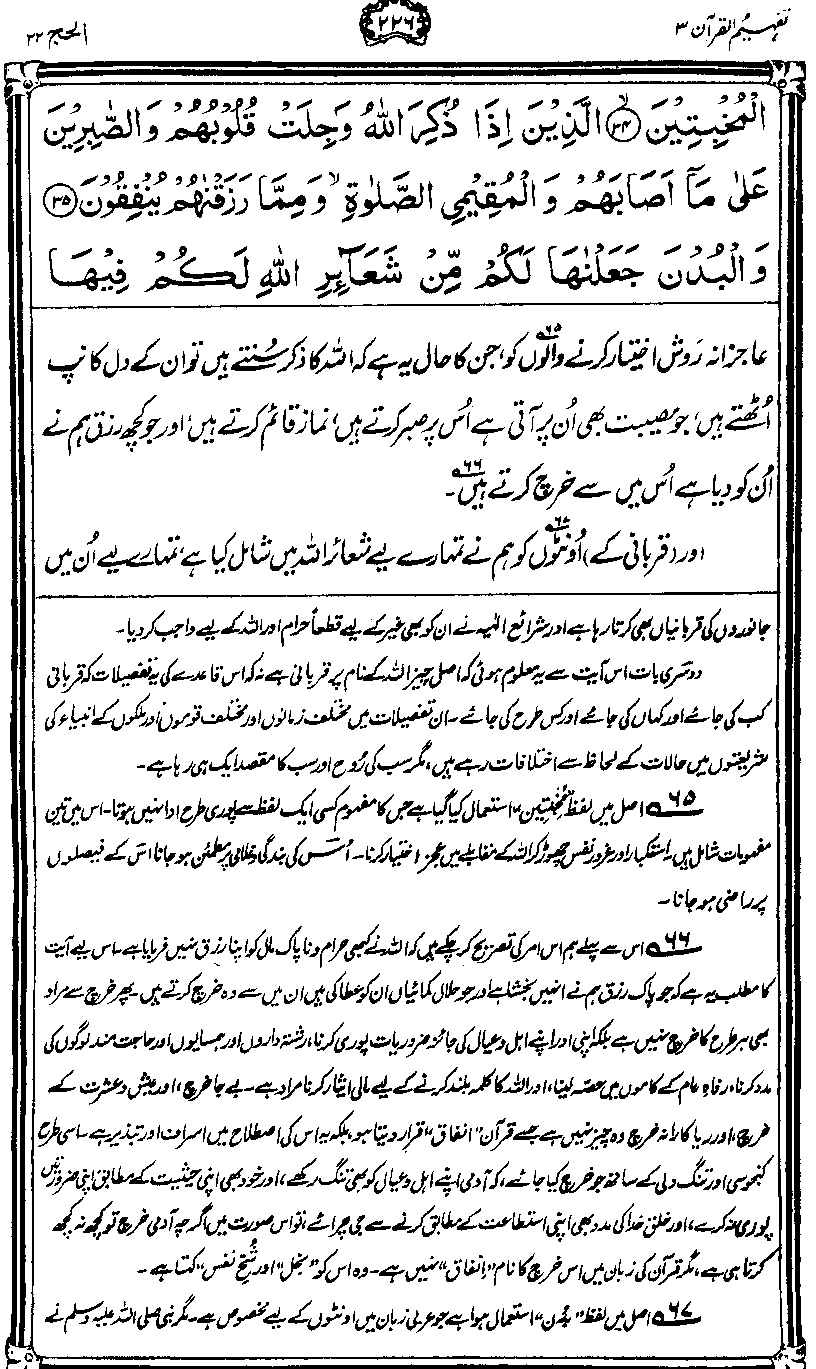 تفہیم القرآن ۳
۲۲۶
الحج ۲۲
الْمُخْبِتِيْنَ ﴿۳۴﴾ الَّذِيْنَ اِذَا ذُكِرَ اللّٰهُ وَجِلَتْ قُلُوْبُهُمْ وَالصّٰبِرِيْنَ
عَلٰى مَاۤ اَصَابَهُمْ وَالْمُقِيْمِي الصَّلٰوةِ ۙ وَمِمَّا رَزَقْنٰهُمْ يُنْفِقُوْنَ ﴿۳۵﴾
وَالْبُدْنَ جَعَلْنٰهَا لَكُمْ مِّنْ شَعَآىِٕرِ اللّٰهِ لَكُمْ فِيْهَا
عاجزانہ رَوِش اختیار کرنے والوں کو،۶۵ جن کا حال یہ ہے کہ اللہ کا ذکر سُنتے ہیں تو ان کے دل کانپ
اُٹھتے ہیں، جو مصیبت بھی اُن پر آتی ہے اُس پر صبر کرتے ہیں، نماز قائم کرتے ہیں، اور جو کچھ رزق ہم نے
اُن کو دیا ہے اُس میں سے خرچ کرتے ہیں۶۶۔
اور (قربانی کے) اُونٹوں۶۷ کو ہم نے تمہارے لیے شعائر اللہ میں شامل کیا ہے، تمہارے لیے اُن میں
جانوروں کی قربانیاں بھی کرتا رہا ہے اور شرائع الٰہیہ نے ان کو بھی غیر کے لیے قطعاً حرام اور اللہ کے لیے واجب کر دیا۔
دوسری بات اس آیت سے یہ معلوم ہوئی کہ اصل چیز اللہ کے نام پر قربانی ہے نہ کہ اس قاعدے کی یہ تفصیلات کہ قربانی
کب کی جائے اور کہاں کی جائے اور کس طرح کی جائے۔ ان تفصیلات میں مختلف زمانوں اور مختلف قوموں اور ملکوں کے انبیاء کی
شریعتوں میں حالات کے لحاظ سے اختلافات رہے ہیں، مگر سب کی رُوح اور سب کا مقصد ایک ہی رہا ہے۔
۶۵ اصل میں لفظ "مُخْبِتِین" استعمال کیا گیا ہے جس کا مفہوم کسی ایک لفظ سے پوری طرح ادا نہیں ہوتا۔ اس میں تین
مفہومات شامل ہیں۔ استکبار اور غرور نفس چھوڑ کر اللہ کے مقابلے میں عجز اختیار کرنا۔ اُس کی بندگی و غلامی پر مطمئن ہو جانا اس کے فیصلوں
پر راضی ہو جانا۔
۶۶ اس سے پہلے ہم اس امر کی تصریح کر چکے ہیں کہ اللہ نے کبھی حرام و ناپاک مال کو اپنا رزق نہیں فرمایا ہے۔ اس لیے آیت
کا مطلب یہ ہے کہ جو پاک رزق ہم نے انہیں بخشا ہے اور جو حلال کمائیاں ان کو عطا کی ہیں ان میں سے وہ خرچ کرتے ہیں۔ پھر خرچ سے مراد
بھی ہر طرح کا خرچ نہیں ہے بلکہ اپنی اور اپنے اہل و عیال کی جائز ضروریات پوری کرنا، رشتہ داروں اور ہمسایوں اور حاجت مند لوگوں کی
مدد کرنا، رفاہِ عام کے کاموں میں حصّہ لینا، اور اللہ کا کلمہ بلند کرنے کے لیے مالی ایثار کرنا مراد ہے۔ بے جا خرچ، اور عیش و عشرت کے
خرچ، اور ریاکارانہ خرچ وہ چیز نہیں ہے جسے قرآن "انفاق" قرار دیتا ہو، بلکہ یہ اس کی اصطلاح میں اسراف اور تبذیر ہے۔ اسی طرح
کنجوسی اور تنگ دلی کے ساتھ جو خرچ کیا جائے، کہ آدمی اپنے اہل و عیال کو بھی تنگ رکھے، اور خود بھی اپنی حیثیت کے مطابق اپنی ضرورتیں
پوری نہ کرے، اور خلق خدا کی مدد بھی اپنی استطاعت کے مطابق کرنے سے جی چرائے، تو اس صورت میں اگرچہ آدمی خرچ تو کچھ نہ کچھ
کرتا ہی ہے، مگر قرآن کی زبان میں اس خرچ کا نام "اِنفاق" نہیں ہے۔ وہ اس کو "بخل" اور "شُحِّ نفس" کہتا ہے۔
۶۷ اصل میں لفظ "بُدْن" استعمال ہوا ہے جو عربی زبان میں اونٹوں کے لیے مخصوص ہے۔ مگر نبی صلی اللہ علیہ وسلم نے